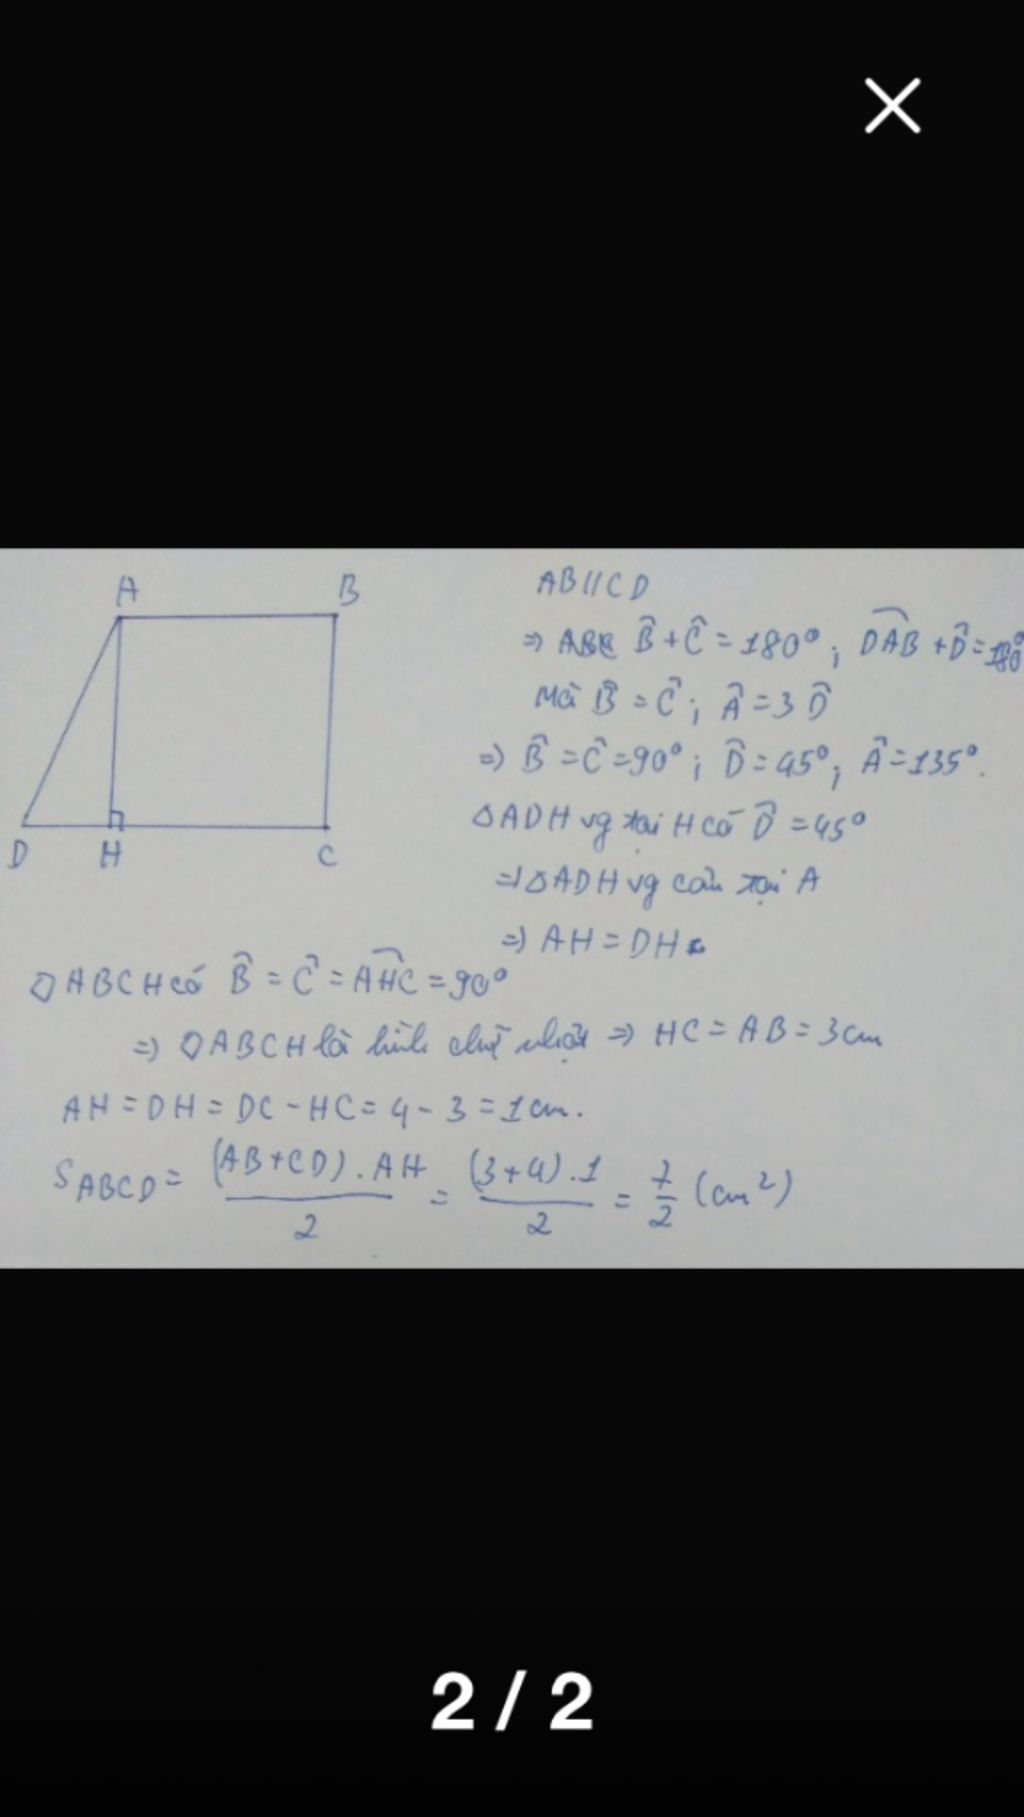 A B
D H C
AB//CD
=> ABC B̂ + Ĉ = 180° ; D̂AB + D̂ = 180°
Mà B̂ = Ĉ ; Â = 3 D̂
=> B̂ = Ĉ = 90° ; D̂ = 45° ; Â = 135°.
△ADH vg tại H có D̂ = 45°
=> △ADH vg cân tại A
=> AH = DH
▱ABCH có B̂ = Ĉ = ÂHC = 90°
=> ▱ABCH là hình chữ nhật => HC = AB = 3cm
AH = DH = DC - HC = 4 - 3 = 1cm.
S ABCD = (AB + CD) . AH / 2 = (3 + 4) . 1 / 2 = 7/2 (cm²)
2 / 2